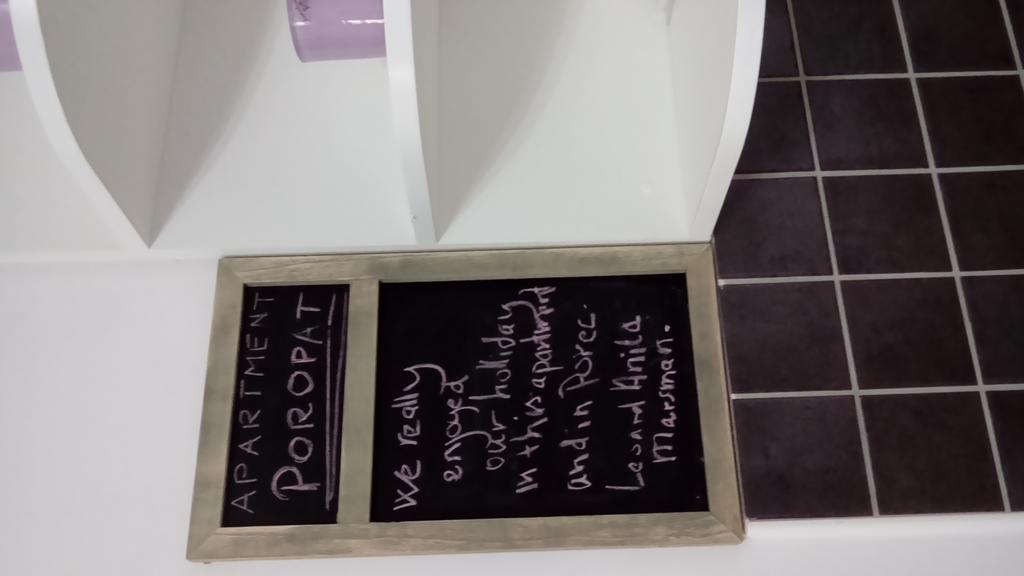 APARTMENT
POROPAT
we really
enjoyed
our holliday
in this apartment
and in Porec.
Leo and Anita
Marsman.